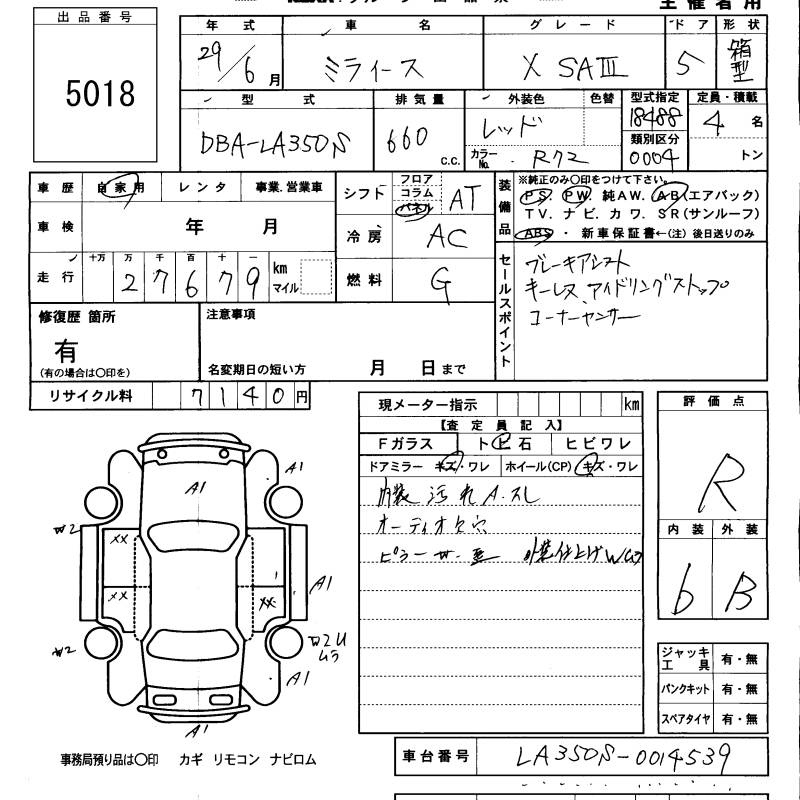 主催者用
出品番号
5018
年式 車名 グレード ドア 形状
29/6月 ミライース X SAⅢ 5 箱型
型式 排気量 外装色 色替 型式指定 定員・積載
DBA-LA350S 660 c.c. レッド 18488 4名
カラーNo. R72 類別区分 0004 トン
車歴 自家用 レンタ 事業.営業車
車検 年 月
走行 十万 万 千 百 十 一
27679 km マイル
シフト フロア コラム パネル AT
冷房 AC
燃料 G
装備品 ※純正のみ〇印をつけて下さい。
PS. PW. 純AW. AB(エアバック)
TV. ナビ. カワ. SR(サンルーフ)
ABS・ 新車保証書←(注) 後日送りのみ
セールスポイント
ブレーキアシスト
キーレス アイドリングストップ
コーナーセンサー
修復歴 箇所
有
(有の場合は〇印を)
注意事項
名変期日の短い方 月 日まで
リサイクル料 7140円
現メーター指示 km
【査定員記入】
Fガラス ト ヒ 石 ヒビワレ
ドアミラー キズ・ワレ ホイール(CP) キズ・ワレ
内装 汚れ A.スレ
オーディオ欠 穴
ピラー
評価点
R
内装 外装
6 B
A1
A1
W2
XX
XX
XX
A1
W2
W2U
ムラ
A1
A1
ジャッキ工具 有・無
パンクキット 有・無
スペアタイヤ 有・無
事務局預り品は〇印 カギ リモコン ナビロム
車台番号 LA350S-0014539